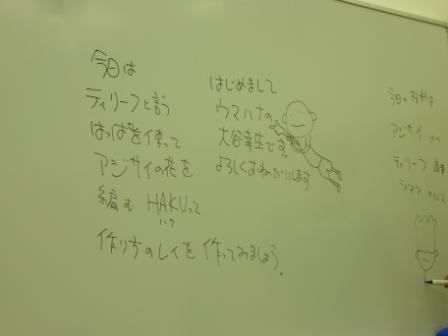 今日は
ティリーフと言う
はっぱを使って
アジサイの花を
編む HAKUって
ハク
作り方のレイを作ってみましょう。
はじめまして
ウマハナの
大谷幸生です。
よろしくおねがいします
今日の材料は
アジサイ
ティリーフ